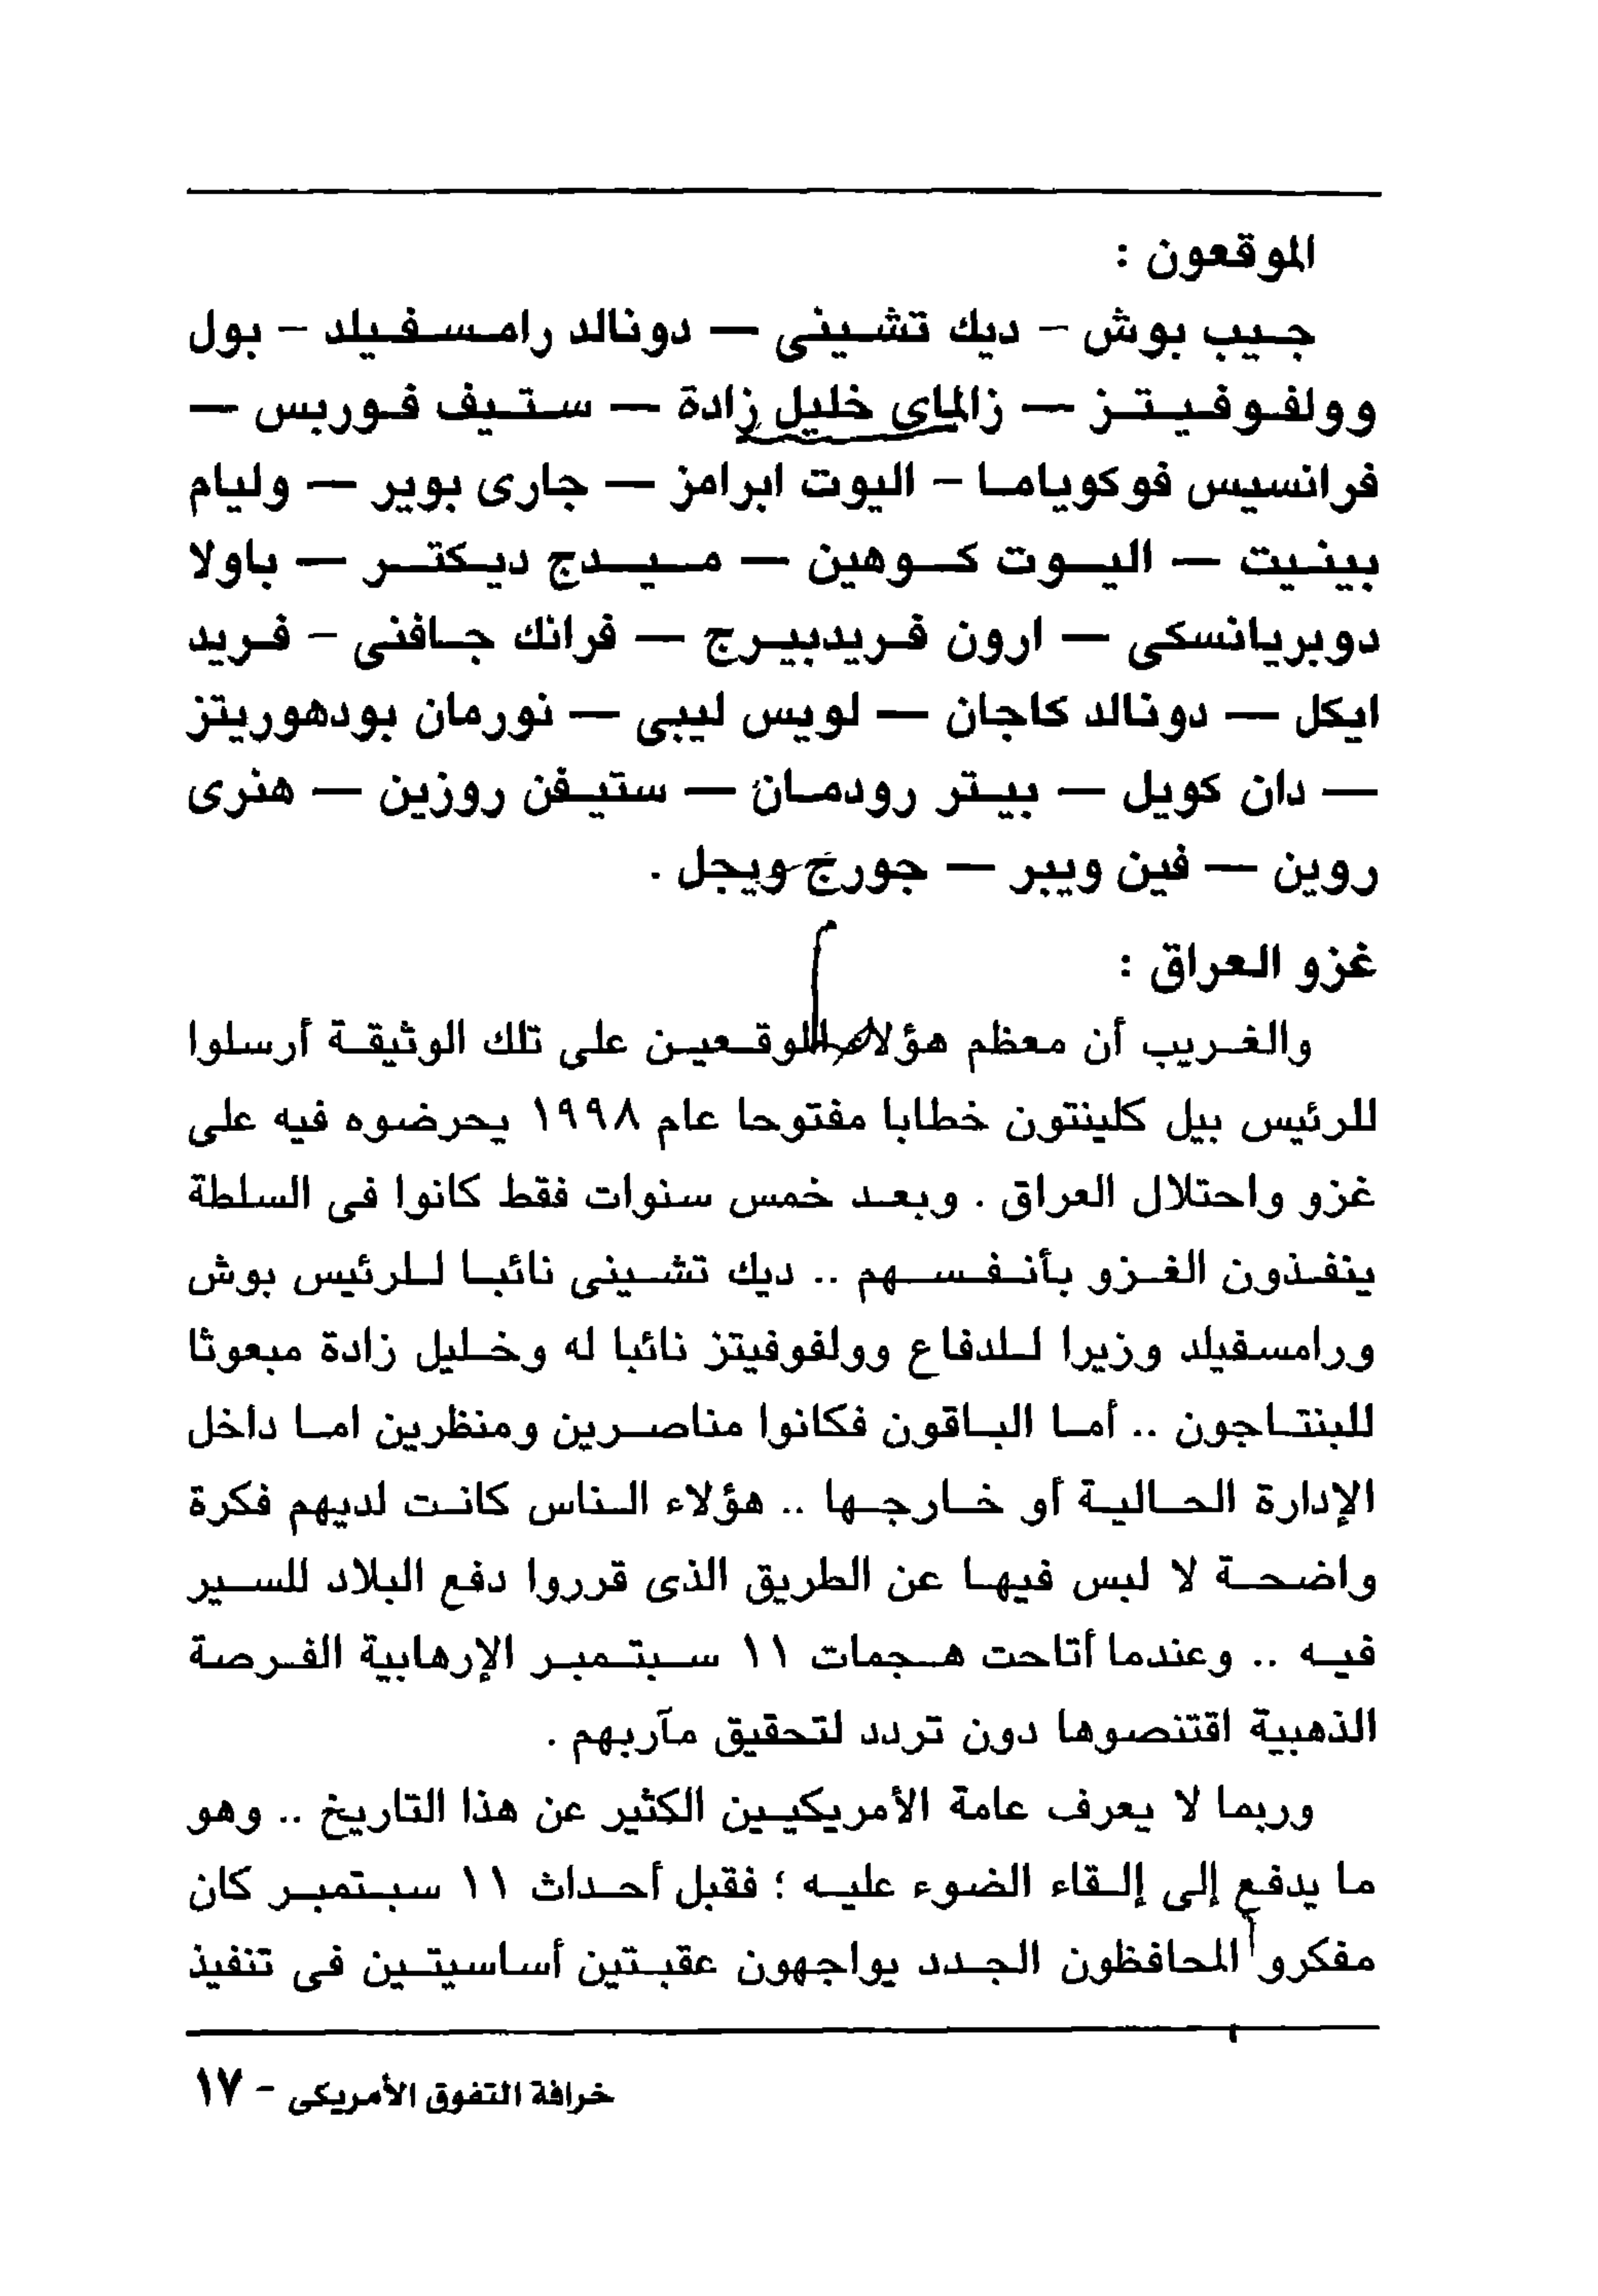 الموقعون :
جيب بوش - ديك تشينى — دونالد رامسفيلد - بول
وولفوفيتز — زالماى خليل زادة — ستيف فوربس —
فرانسيس فوكوياما - اليوت ابرامز — جارى بوير — وليام
بينيت — اليوت كوهين — ميدج ديكتر — باولا
دوبريانسكى — ارون فريدبيرج — فرانك جافنى - فريد
ايكل — دونالد كاجان — لويس ليبى — نورمان بودهوريتز
— دان كويل — بيتر رودمان — ستيفن روزين — هنرى
روين — فين ويبر — جورج ويجل .
غزو العراق :
والغريب أن معظم هؤلاء الموقعين على تلك الوثيقة أرسلوا
للرئيس بيل كلينتون خطابا مفتوحا عام ١٩٩٨ يحرضوه فيه على
غزو واحتلال العراق . وبعد خمس سنوات فقط كانوا فى السلطة
ينفذون الغزو بأنفسهم .. ديك تشينى نائبا للرئيس بوش
ورامسفيلد وزيرا للدفاع وولفوفيتز نائبا له وخليل زادة مبعوثا
للبنتاجون .. أما الباقون فكانوا مناصرين ومنظرين اما داخل
الإدارة الحالية أو خارجها .. هؤلاء الناس كانت لديهم فكرة
واضحة لا لبس فيها عن الطريق الذى قرروا دفع البلاد للسير
فيه .. وعندما أتاحت هجمات ١١ سبتمبر الإرهابية الفرصة
الذهبية اقتنصوها دون تردد لتحقيق مآربهم .
وربما لا يعرف عامة الأمريكيين الكثير عن هذا التاريخ .. وهو
ما يدفع إلى إلقاء الضوء عليه ؛ فقبل أحداث ١١ سبتمبر كان
مفكرو المحافظون الجدد يواجهون عقبتين أساسيتين فى تنفيذ
خرافة التفوق الأمريكى - ١٧